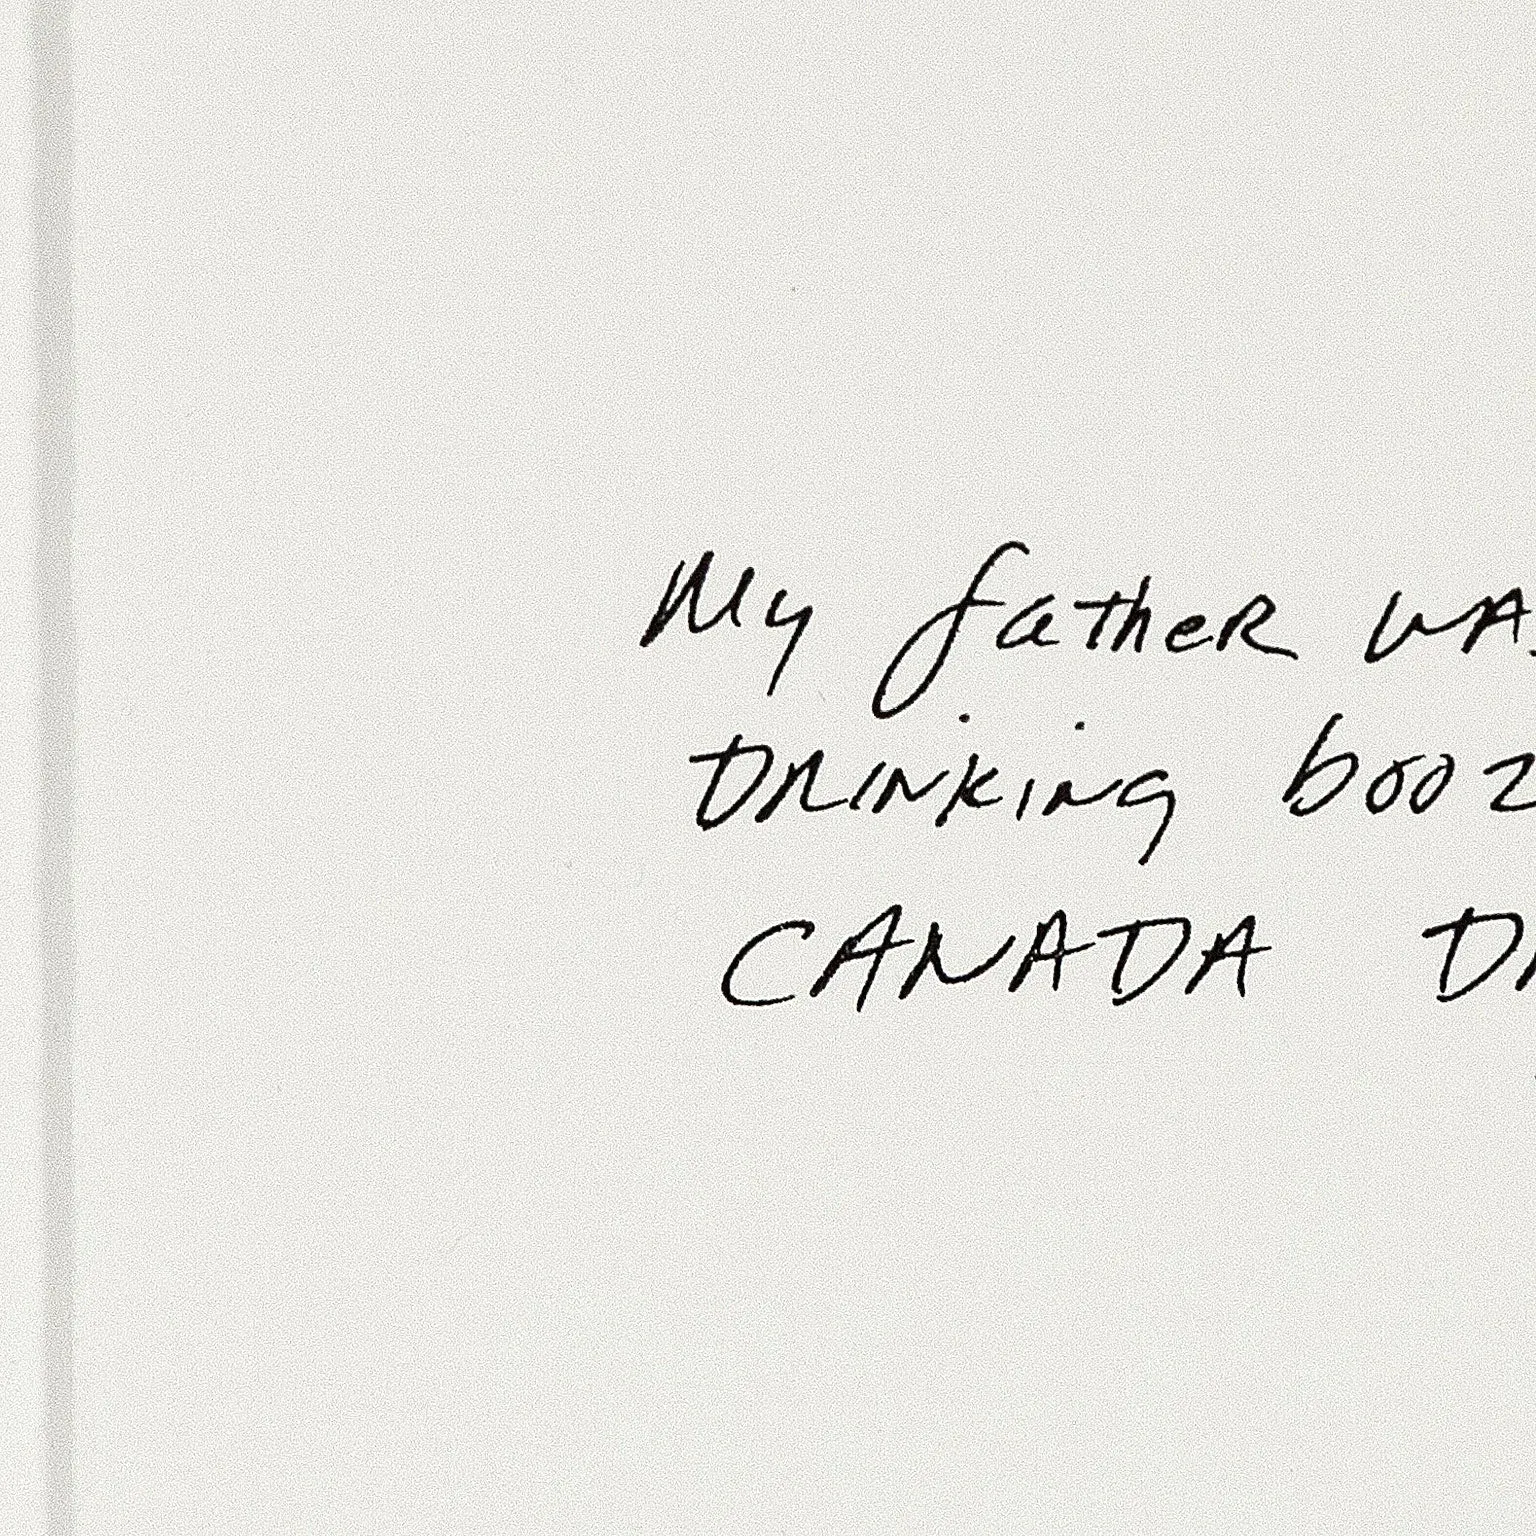 My father WA
DRINKing booz
CANADA D